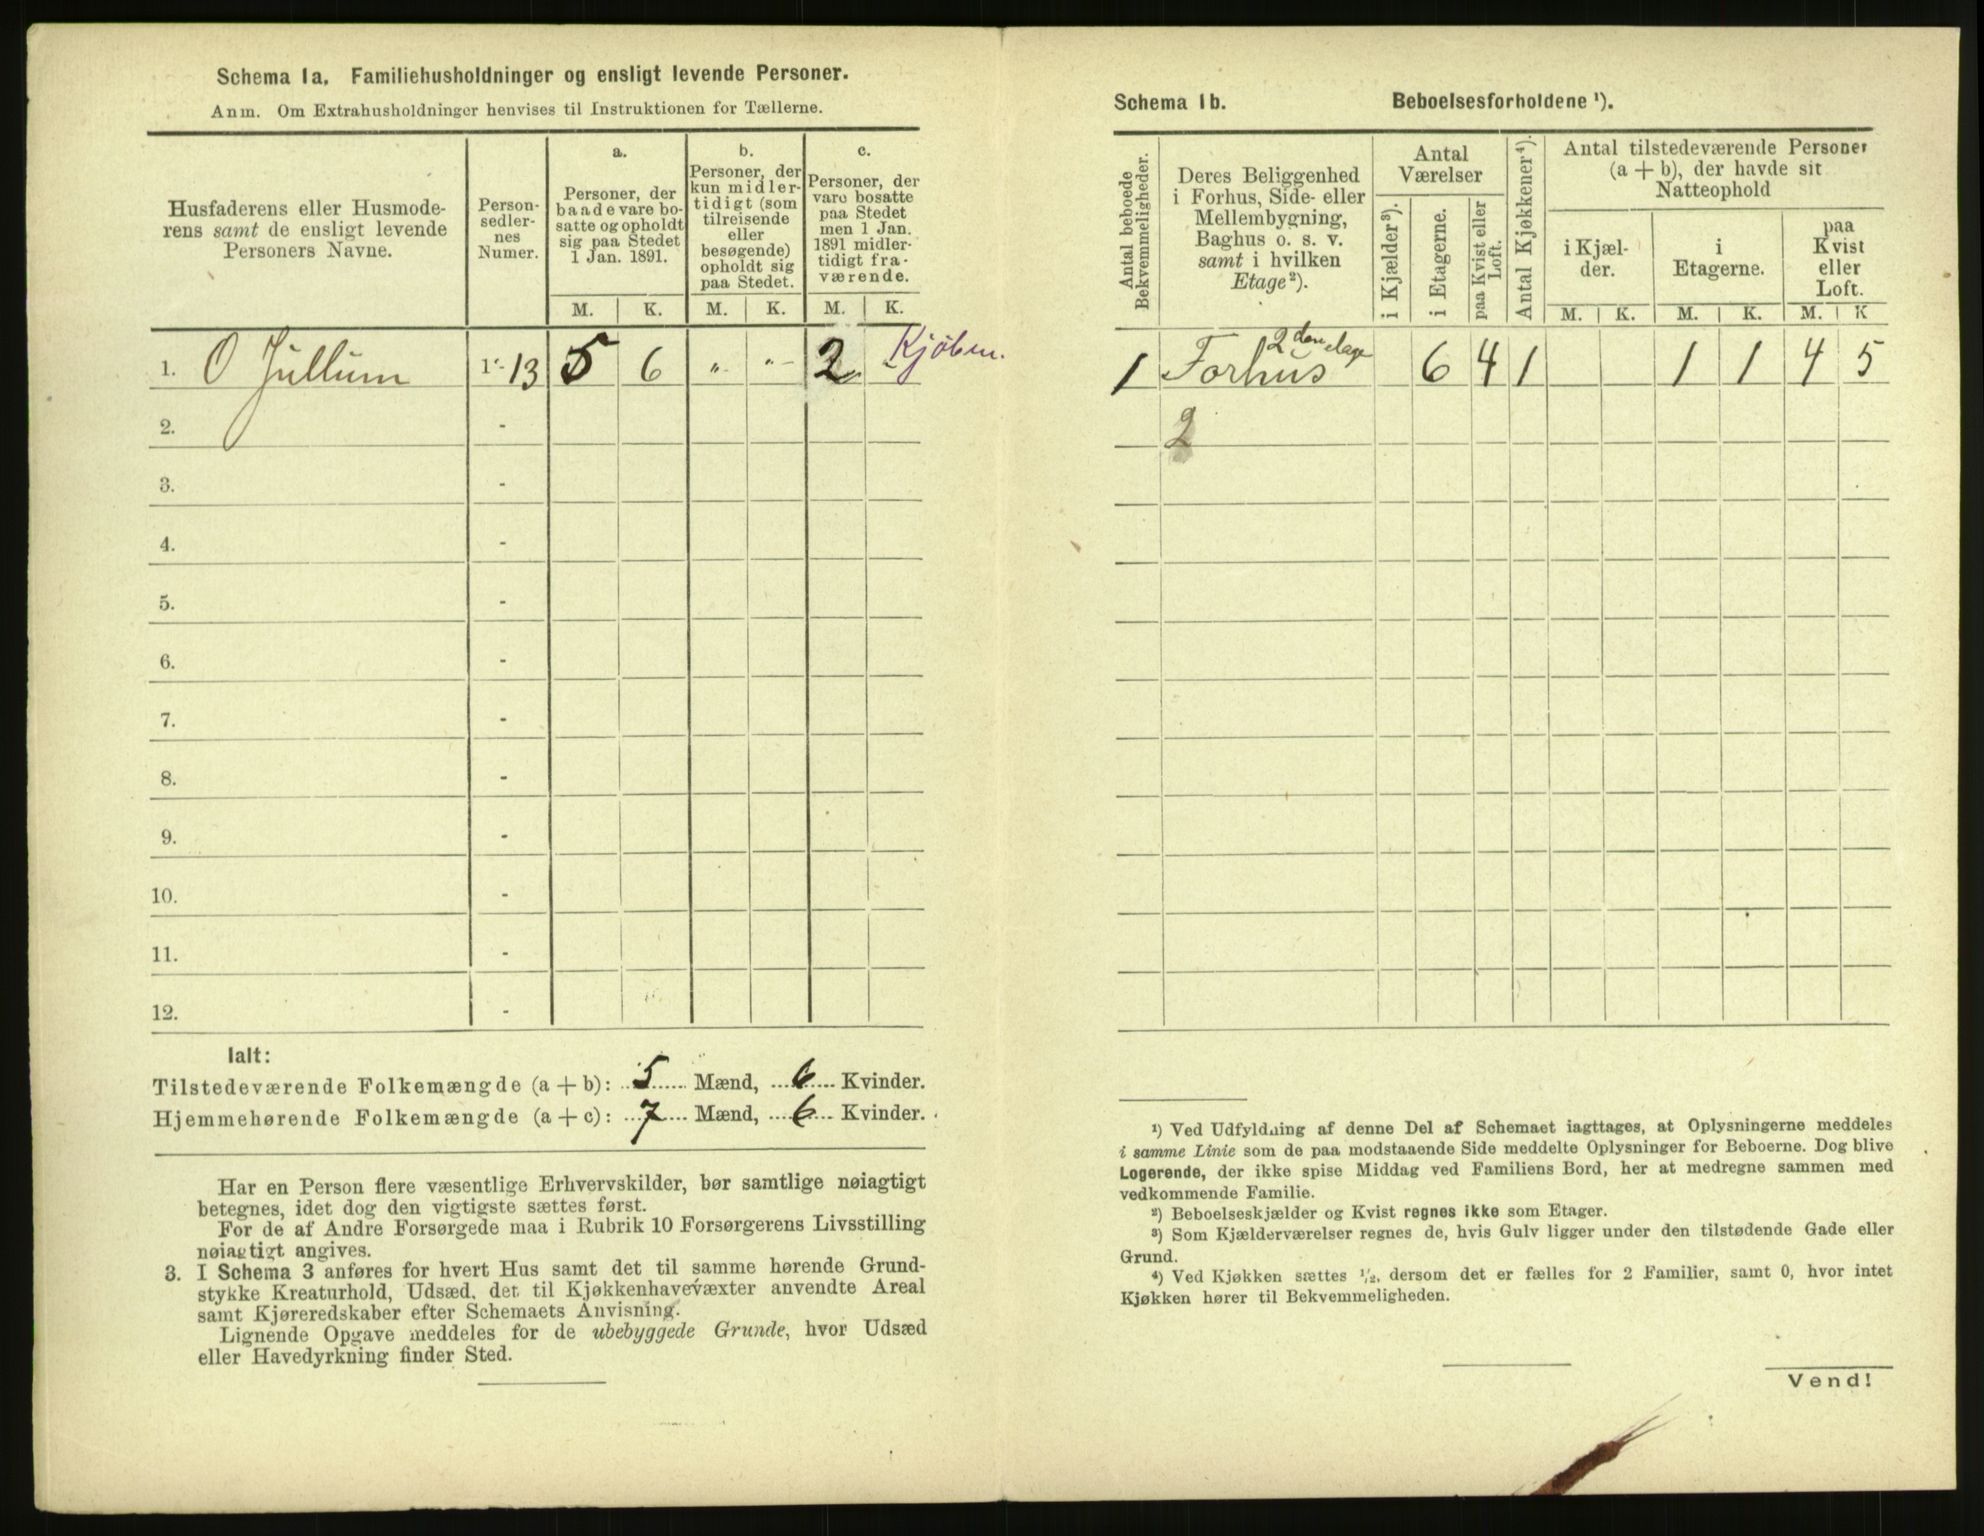 Schema 1a. Familiehusholdninger og ensligt levende Personer.
Anm. Om Extrahusholdninger henvises til Instruktionen for Tællerne.
Husfaderens eller Husmode-
rens samt de ensligt levende
Personers Navne.
Person-
sedler-
nes
Numer.
a.
Personer, der
baade vare bo-
satte og opholdt
sig paa Stedet
1 Jan. 1891.
b.
Personer, der
kun midler-
tidigt (som
tilreisende
eller
besøgende)
opholdt sig
paa Stedet.
c.
Personer, der
vare bosatte
paa Stedet
men 1 Jan.
1891 midler-
tidigt fra-
værende.
M. K. M. K. M. K.
1. O Jullum 1 - 13 5 6 „ „ 2 - Kjøben.
2. -
3. -
4. -
5. -
6. -
7. -
8. -
9. -
10. -
11. -
12. -
Ialt:
Tilstedeværende Folkemængde (a + b): 5 Mænd, 6 Kvinder.
Hjemmehørende Folkemængde (a + c): 7 Mænd, 6 Kvinder.
Har en Person flere væsentlige Erhvervskilder, bør samtlige nøiagtigt
betegnes, idet dog den vigtigste sættes først.
For de af Andre Forsørgede maa i Rubrik 10 Forsørgerens Livsstilling
nøiagtigt angives.
3. I Schema 3 anføres for hvert Hus samt det til samme hørende Grund-
stykke Kreaturhold, Udsæd, det til Kjøkkenhavevæxter anvendte Areal
samt Kjøreredskaber efter Schemaets Anvisning.
Lignende Opgave meddeles for de ubebyggede Grunde, hvor Udsæd
eller Havedyrkning finder Sted.
Schema 1b. Beboelsesforholdene ¹).
Antal beboede
Bekvemmeligheder.
Deres Beliggenhed
i Forhus, Side- eller
Mellembygning,
Baghus o. s. v.
samt i hvilken
Etage ²).
Antal
Værelser
i Kjælder ³).
i Etagerne.
paa Kvist eller
Loft.
Antal Kjøkkener ⁴).
Antal tilstedeværende Personer
(a + b), der havde sit
Natteophold
i Kjæl-
der.
i
Etagerne.
paa
Kvist
eller
Loft.
M. K. M. K. M. K
2den etage
1 Forhus 6 4 1 1 1 4 5
2
¹) Ved Udfyldning af denne Del af Schemaet iagttages, at Oplysningerne meddeles
i samme Linie som de paa modstaaende Side meddelte Oplysninger for Beboerne. Dog blive
Logerende, der ikke spise Middag ved Familiens Bord, her at medregne sammen med
vedkommende Familie.
²) Beboelseskjælder og Kvist regnes ikke som Etager.
³) Som Kjælderværelser regnes de, hvis Gulv ligger under den tilstødende Gade eller
Grund.
⁴) Ved Kjøkken sættes ½, dersom det er fælles for 2 Familier, samt 0, hvor intet
Kjøkken hører til Bekvemmeligheden.
Vend!